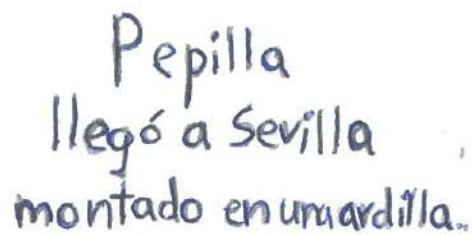 Pepilla
llegó a Sevilla
montado en una ardilla.